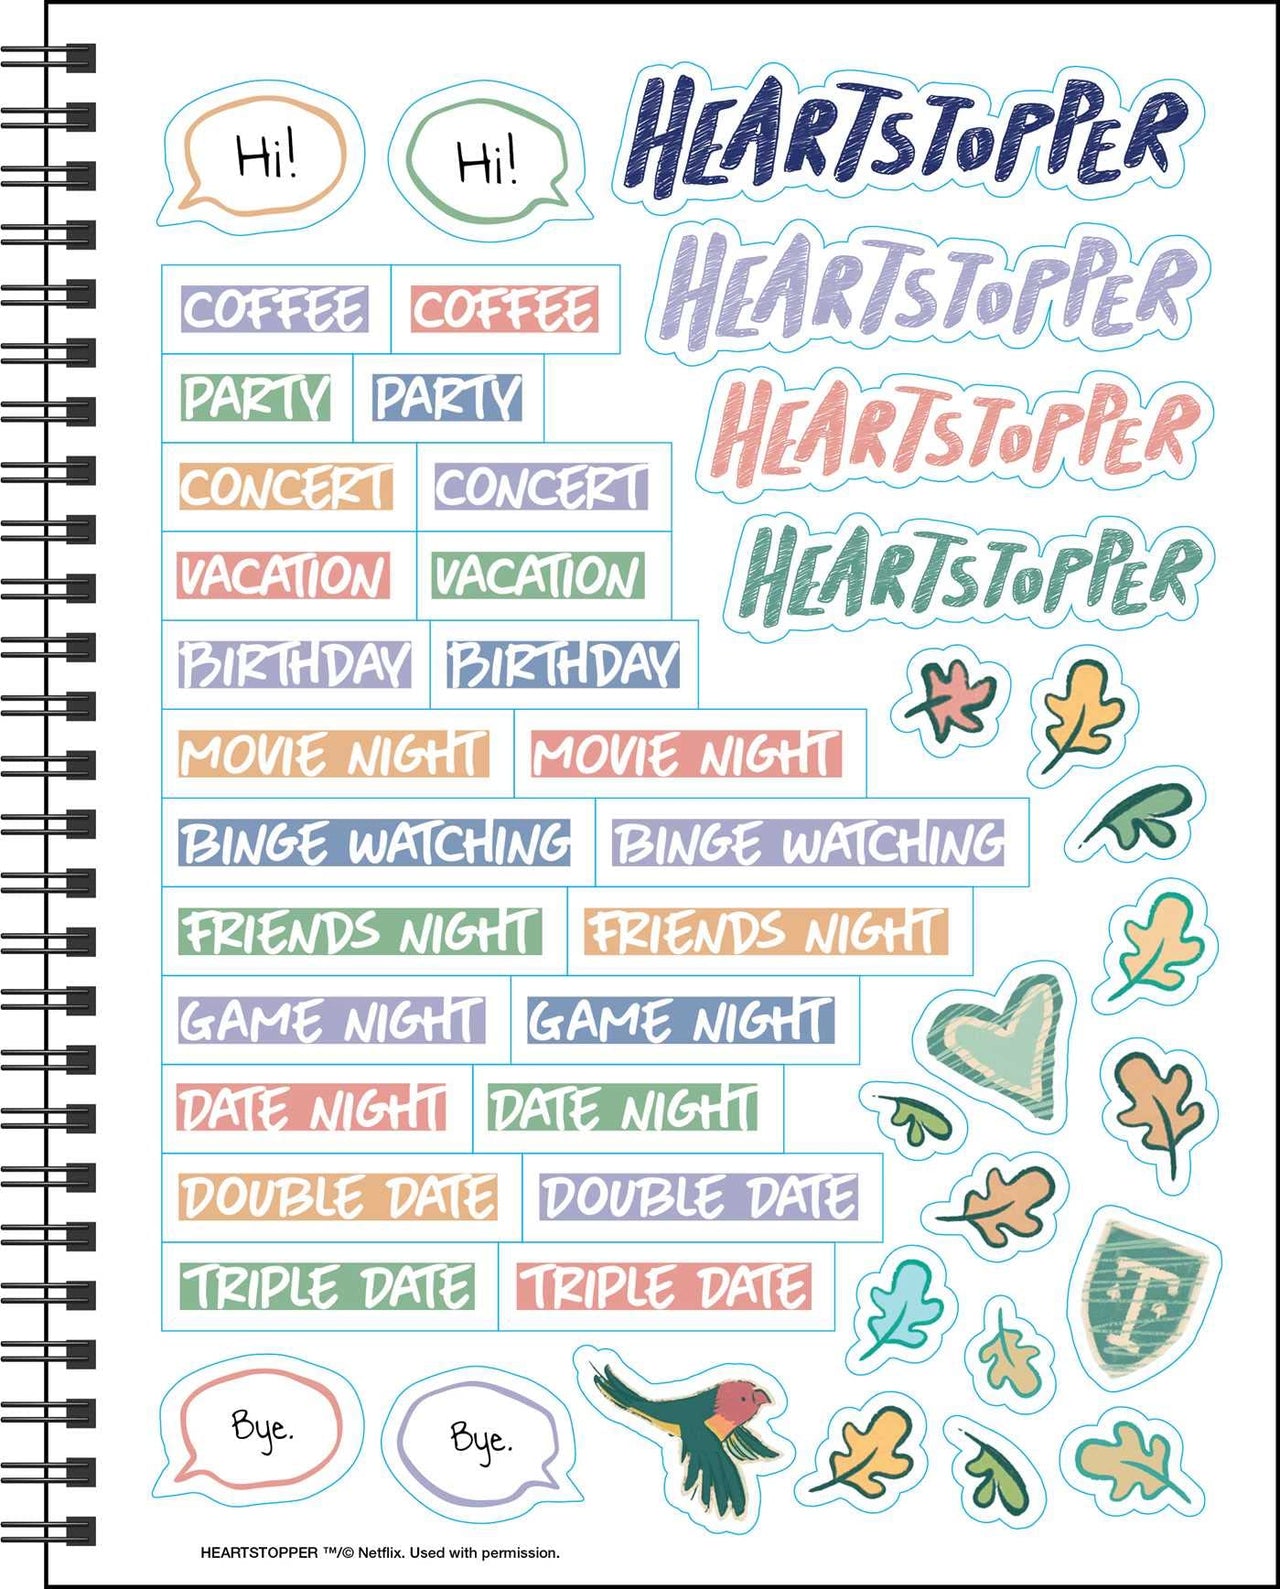 Hi!
Hi!
HEARTSTOPPER
HEARTSTOPPER
HEARTSTOPPER
HEARTSTOPPER
COFFEE COFFEE
PARTY PARTY
CONCERT CONCERT
VACATION VACATION
BIRTHDAY BIRTHDAY
MOVIE NIGHT MOVIE NIGHT
BINGE WATCHING BINGE WATCHING
FRIENDS NIGHT FRIENDS NIGHT
GAME NIGHT GAME NIGHT
DATE NIGHT DATE NIGHT
DOUBLE DATE DOUBLE DATE
TRIPLE DATE TRIPLE DATE
T
Bye.
Bye.
HEARTSTOPPER ™/© Netflix. Used with permission.